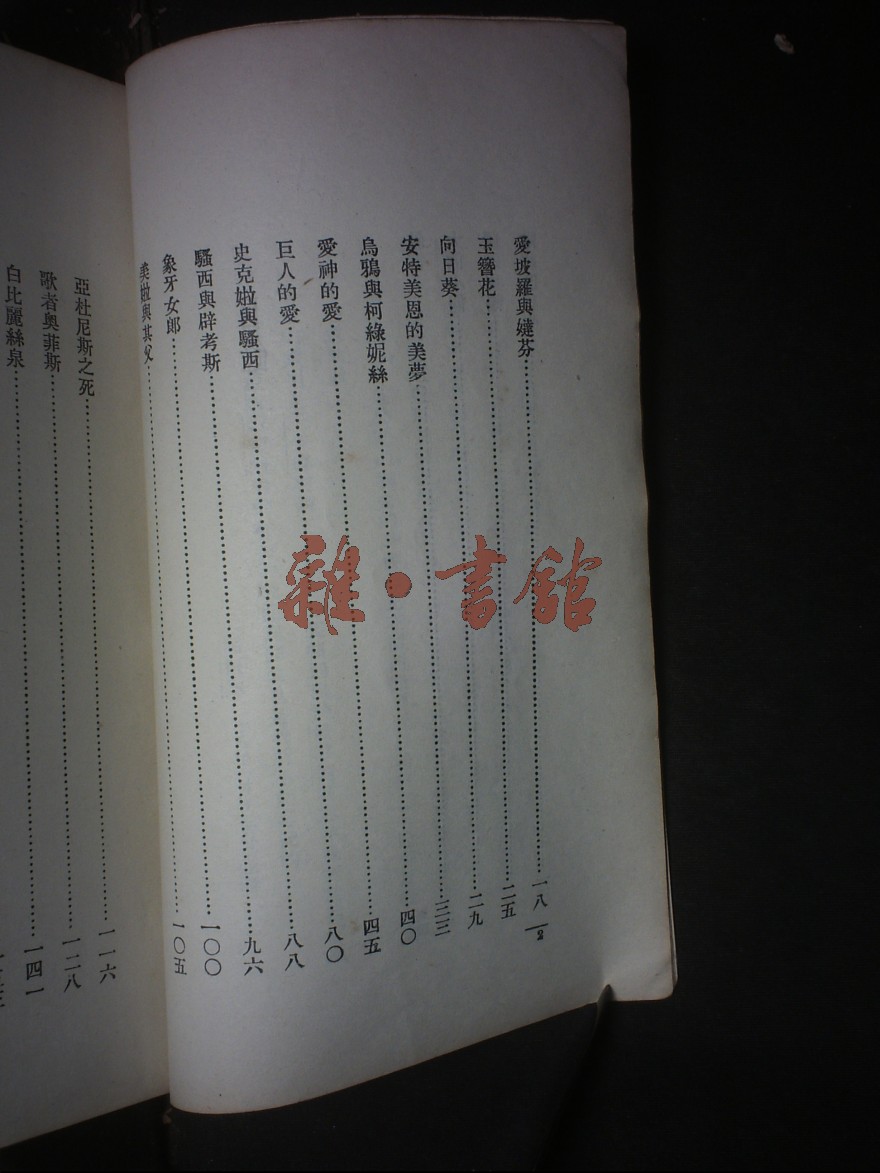 愛坡羅與芬……一八
玉簪花……二五
向日葵……二九
安特美恩的美夢……三三
烏鴉與柯綠妮絲……四〇
愛神的愛……四五
巨人的愛……八〇
史克與騷西……八八
騷西與辟考斯……九六
象牙女郎……一〇〇
美與其父……一〇五
2
亞杜尼斯之死……一一六
歌者奧菲斯……一二八
白比麗絲泉……一四一
雜·書館